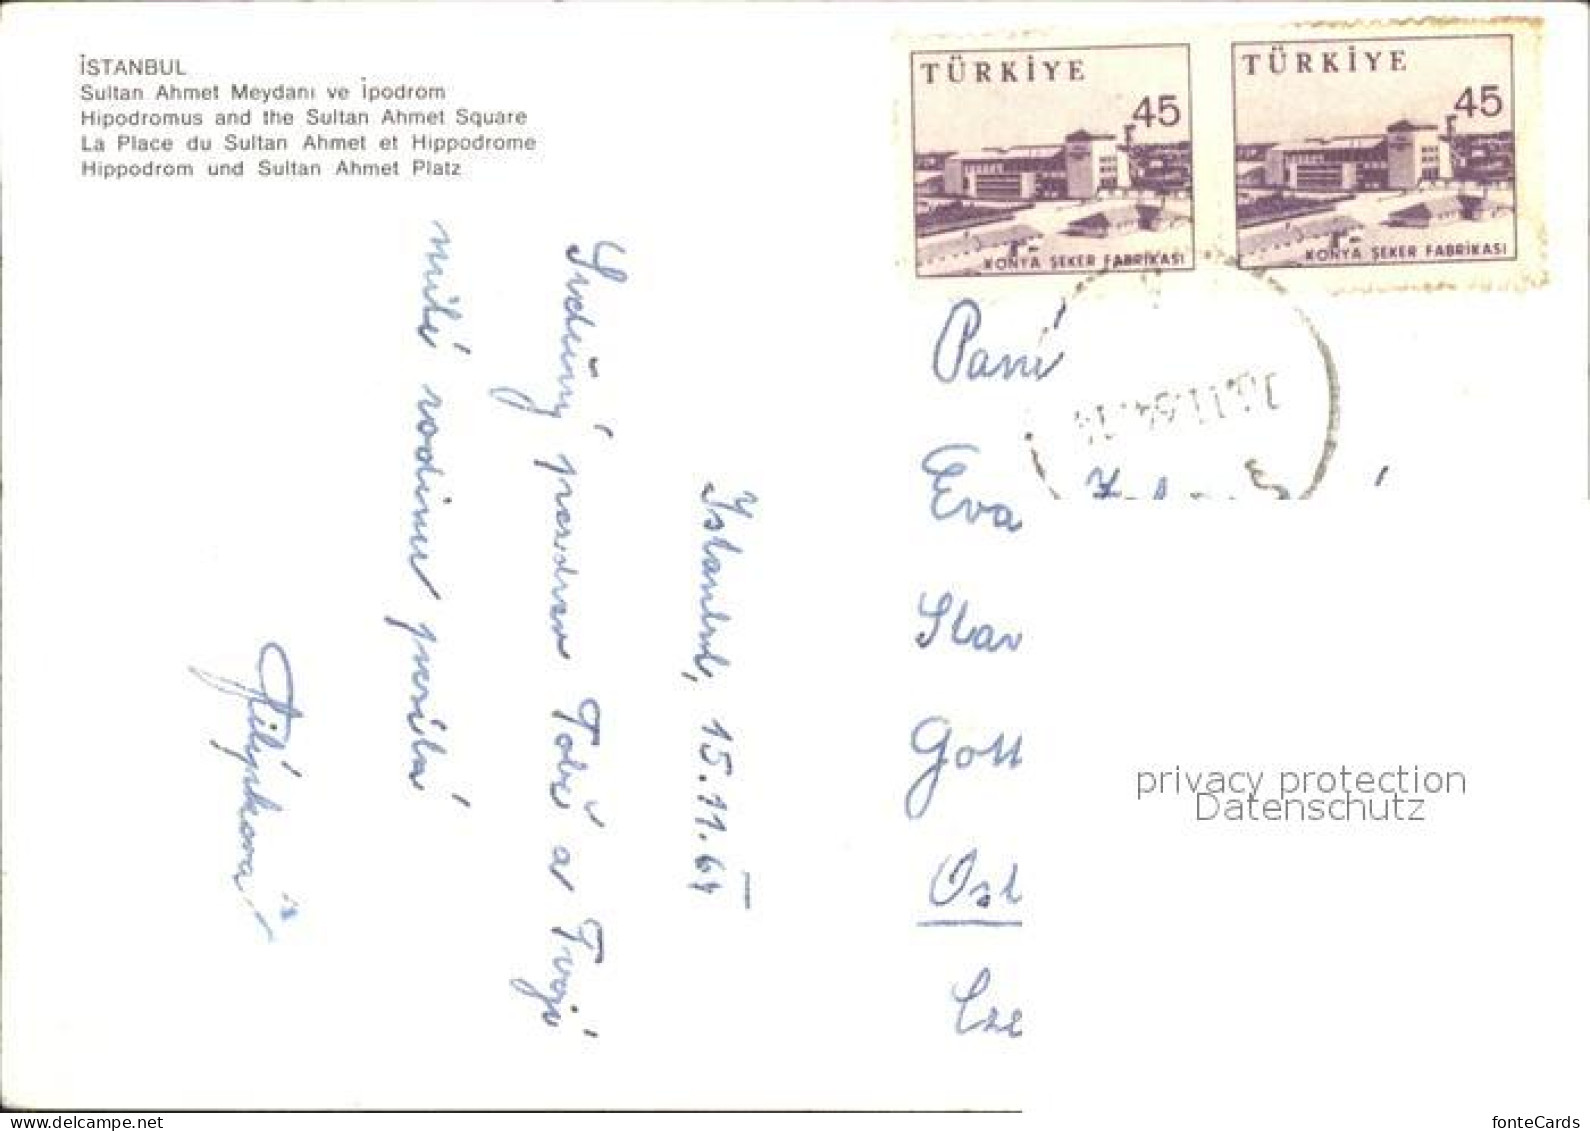 İSTANBUL
Sultan Ahmet Meydanı ve İpodrom
Hipodromus and the Sultan Ahmet Square
La Place du Sultan Ahmet et Hippodrome
Hippodrom und Sultan Ahmet Platz
TÜRKİYE
45
KONYA ŞEKER FABRİKASI
TÜRKİYE
45
KONYA ŞEKER FABRİKASI
Istanbul, 15.11.64
Srdečný pozdrav Tobě a Tvojí
milé rodince posílá
Paní
Eva
Gott
Ost
privacy protection
Datenschutz
delcampe.net
fonteCards